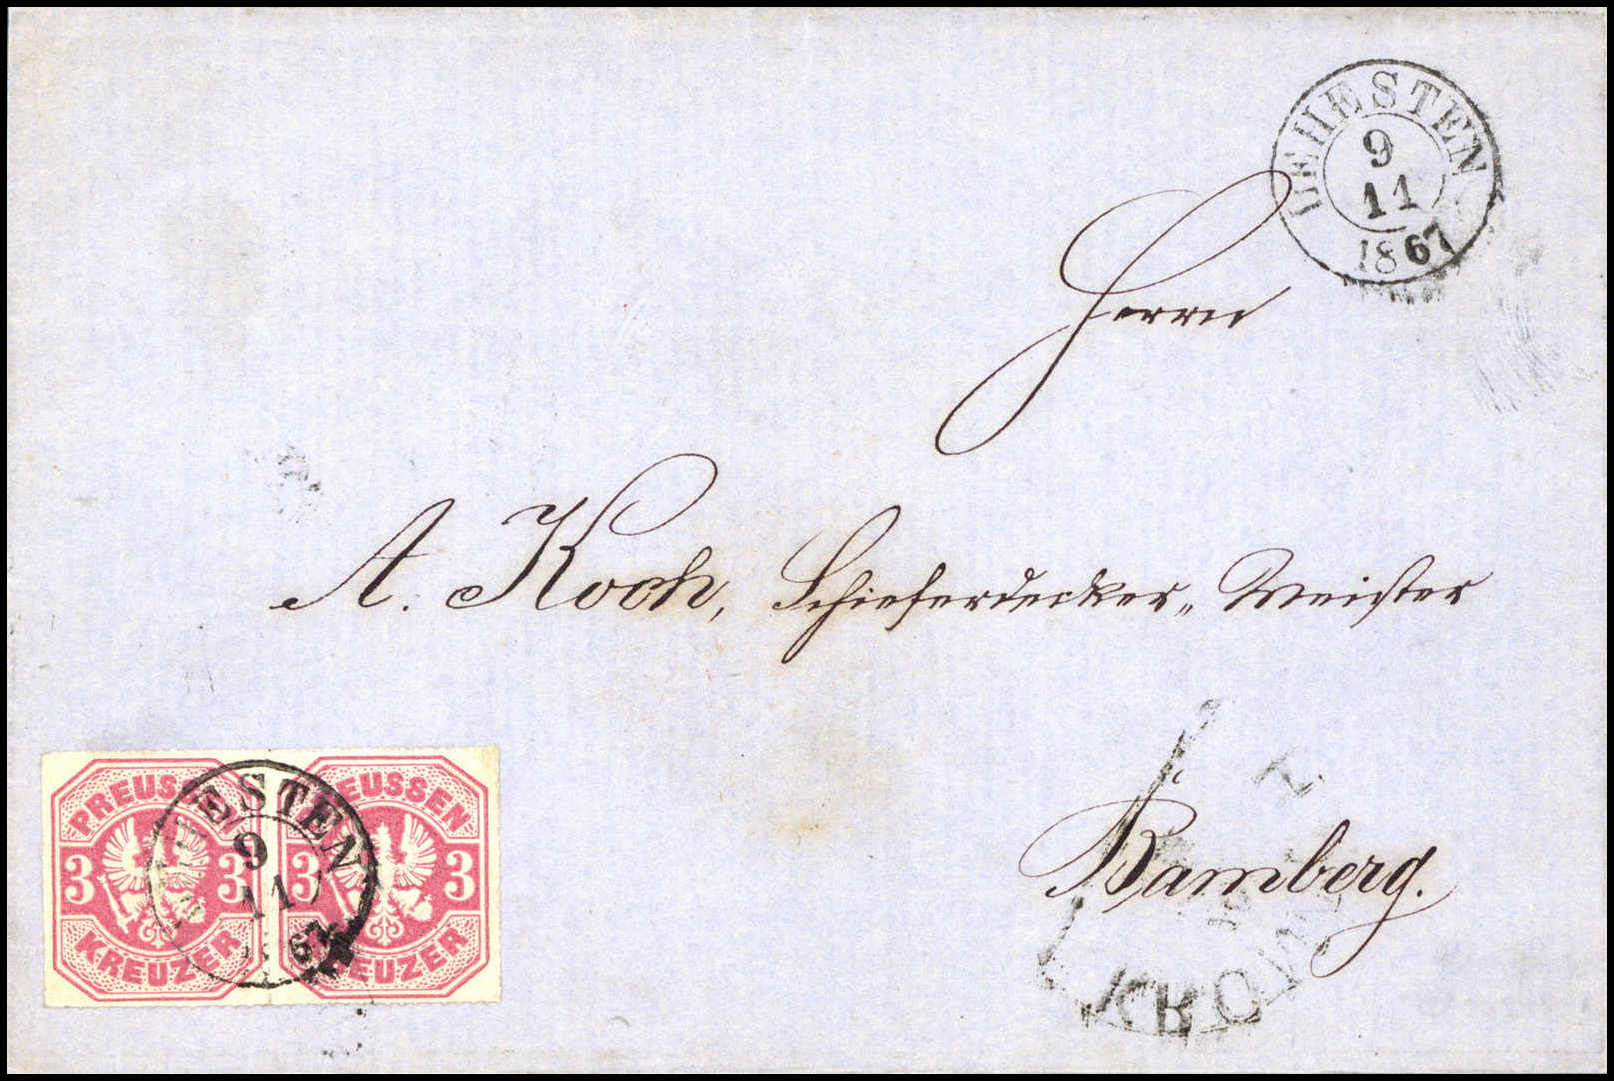 LEHESTEN
9
11
1867
Herrn
A. Koch, Schieferdecker-Meister
Bamberg.
PREUSSEN
3 3
KREUZER
PREUSSEN
3 3
KREUZER
LEHESTEN
9
11
1867
KRON